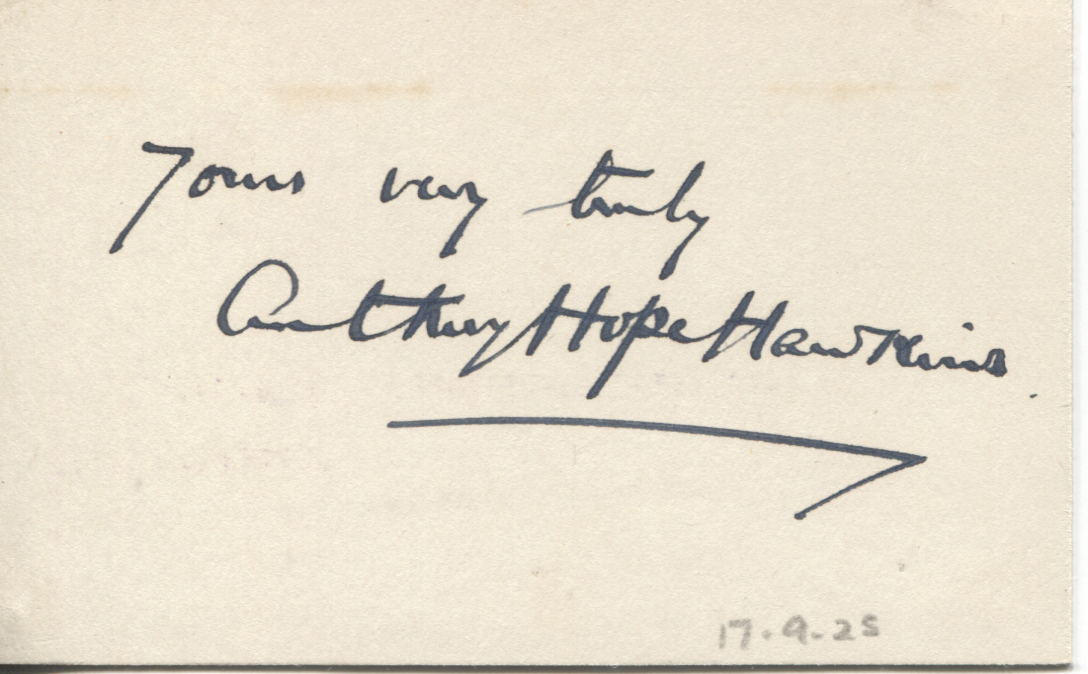 Yours very truly
Anthony Hope Hawkins
17.9.25